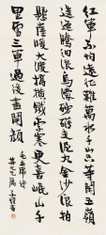 紅軍不怕遠征難萬水千山只等閑五嶺
逶迤騰細浪烏蒙磅礴走泥丸金沙浪拍
懸崖暖大渡橋橫鐵索寒更喜岷山千
里雪三軍過後盡開顏
毛主席詩